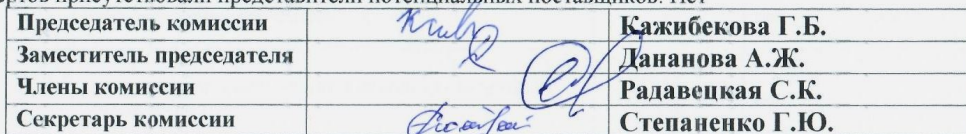 присутствовали представители потенциальных поставщиков. Нет
Председатель комиссии Кажибекова Г.Б.
Заместитель председателя Дананова А.Ж.
Члены комиссии Радавецкая С.К.
Секретарь комиссии Степаненко Г.Ю.